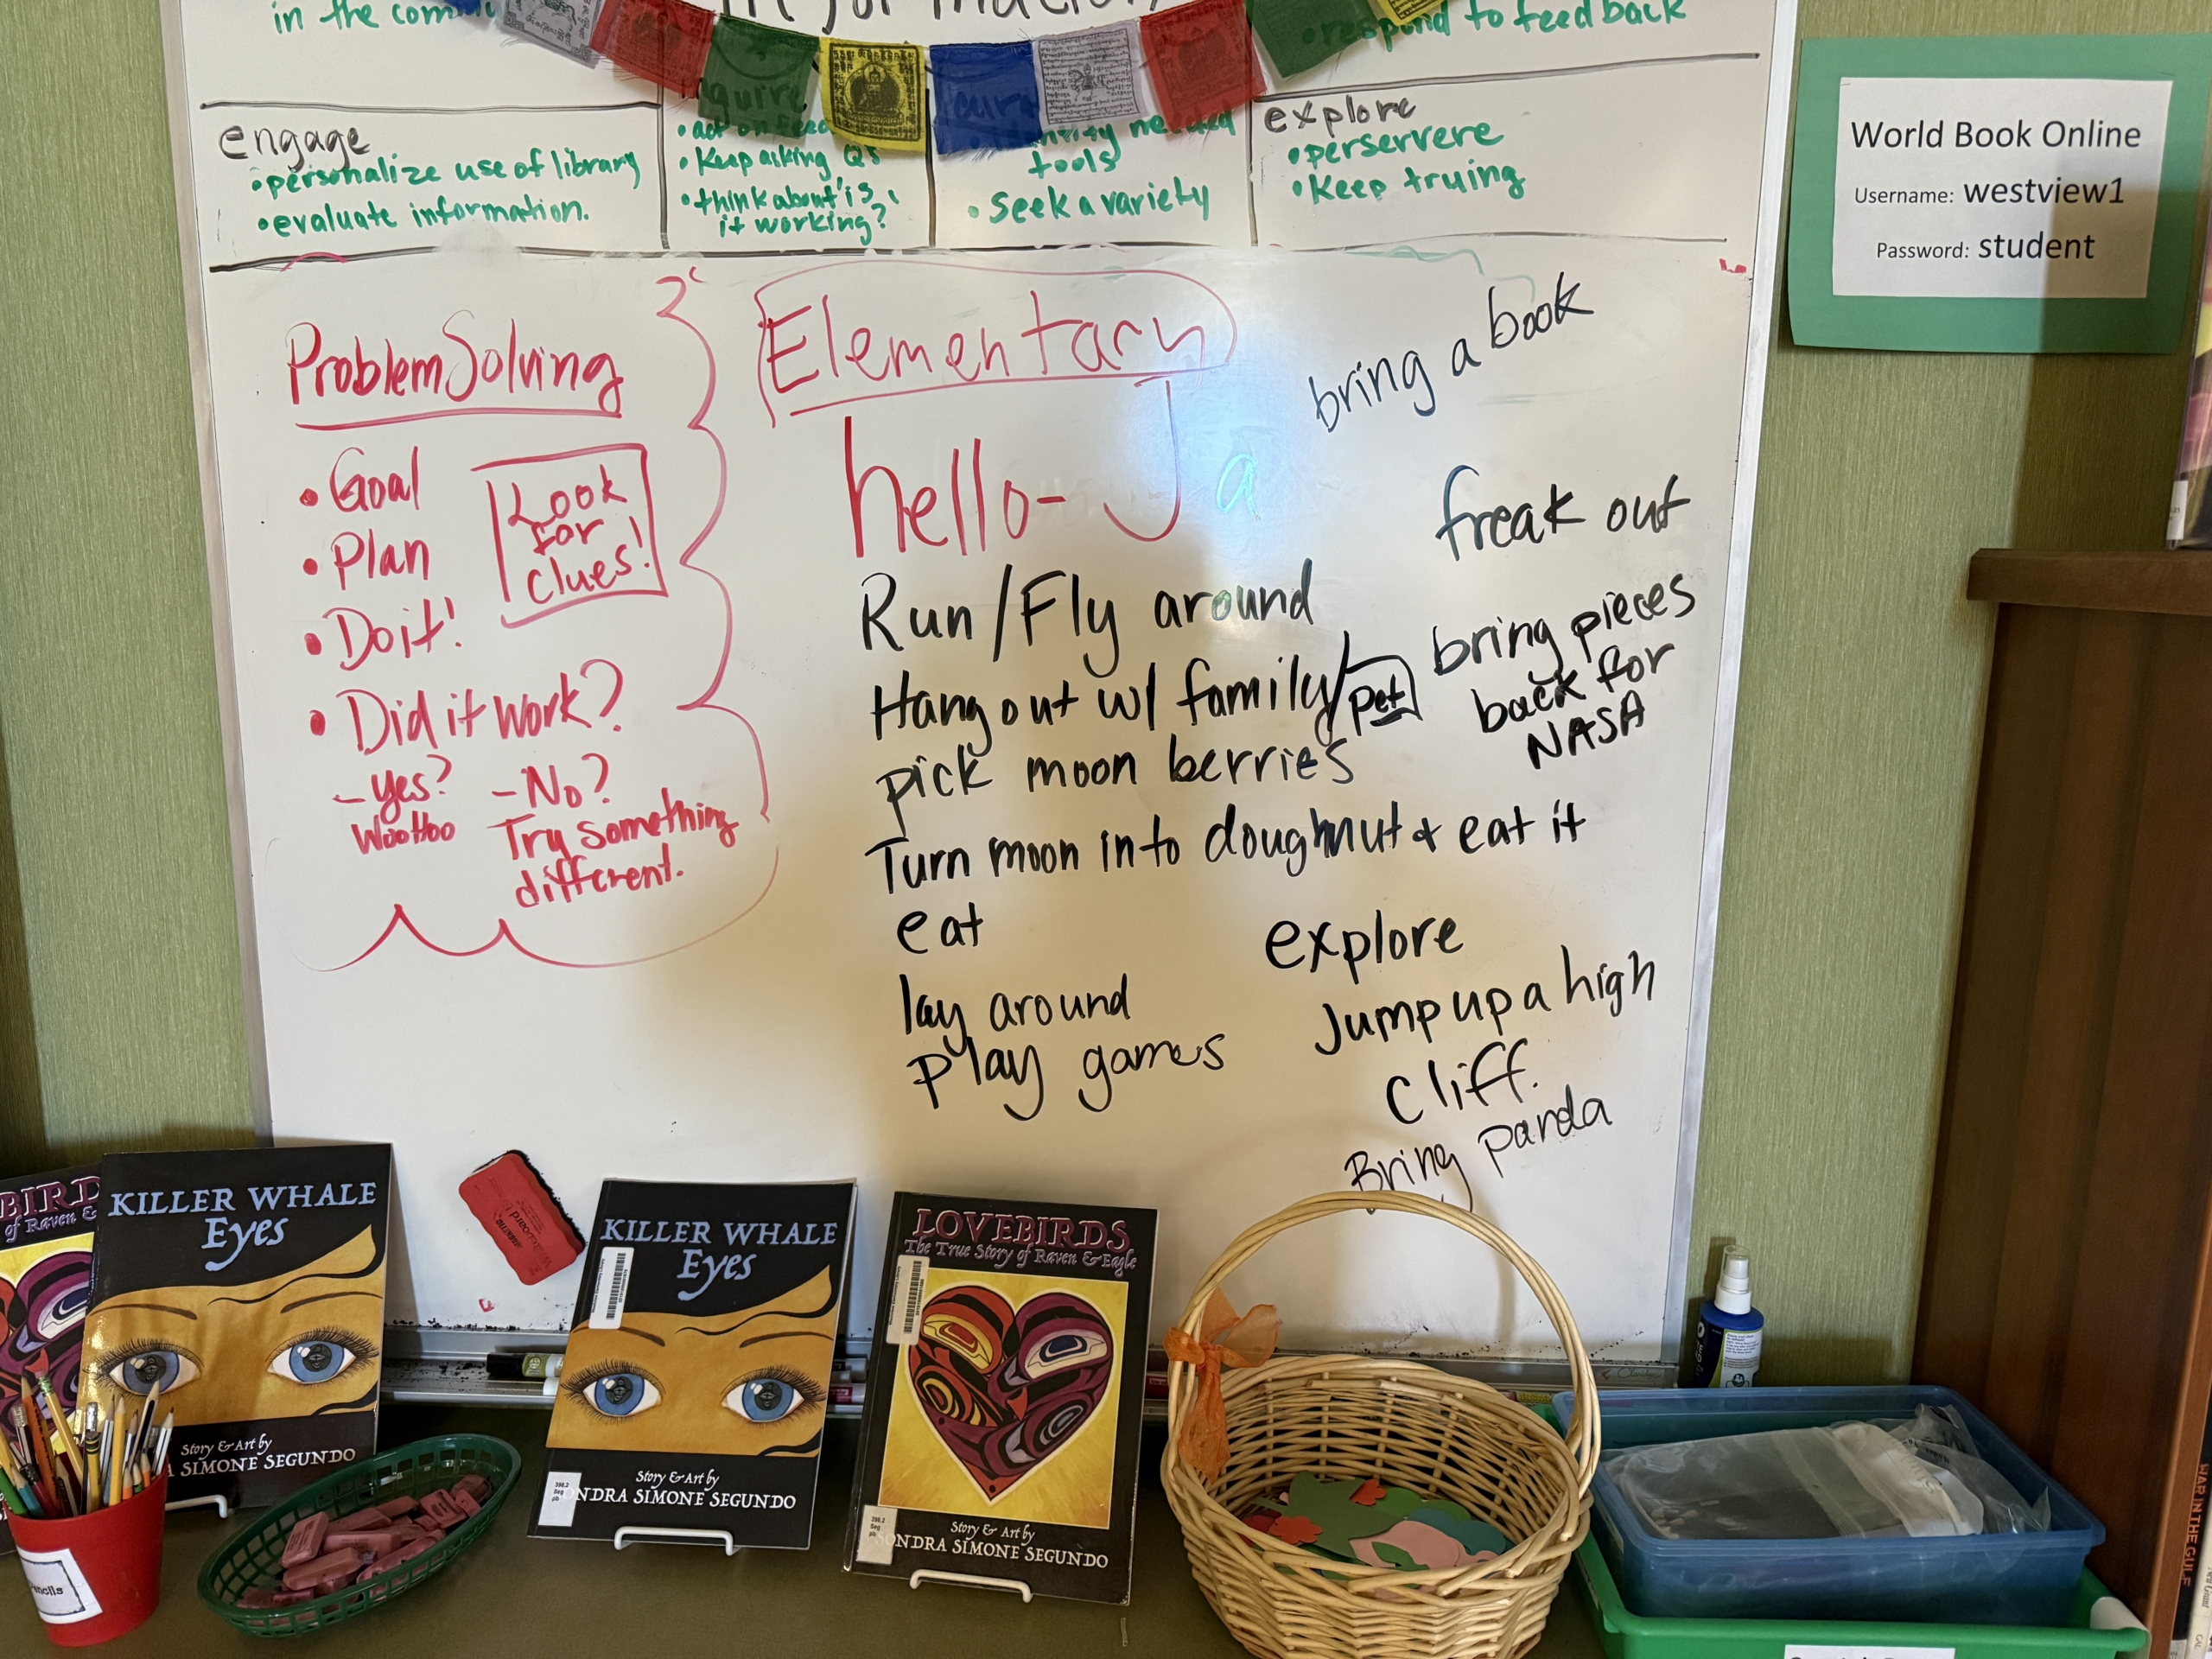 in the
respond to feedback
engage
• personalize use of library
• evaluate information.
• Keep asking Qs
• think about "is
it working?"
needed
tools
• Seek a variety
explore
• perservere
• Keep truing
World Book Online
Username: westview1
Password: student
Problem Solving
• Goal
• Plan
• Do it!
• Did it work?
- yes?
WooHoo
- No?
Try something
different.
Look
for
clues!
Elementary
hello- J a
Run/Fly around
Hang out w/ family/pet
pick moon berries
Turn moon into doughnut & eat it
eat
lay around
Play games
bring a book
freak out
bring pieces
back for
NASA
explore
Jump up a high
Cliff.
Bring panda
BIRD
of Raven &
KILLER WHALE
Eyes
Story & Art by
A SIMONE SEGUNDO
KILLER WHALE
Eyes
Story & Art by
ONDRA SIMONE SEGUNDO
398.2
Seg
pb
LOVEBIRDS
The True Story of Raven & Eagle
Story & Art by
ONDRA SIMONE SEGUNDO
398.2
Seg
pb
ncils
WAR IN THE GULF